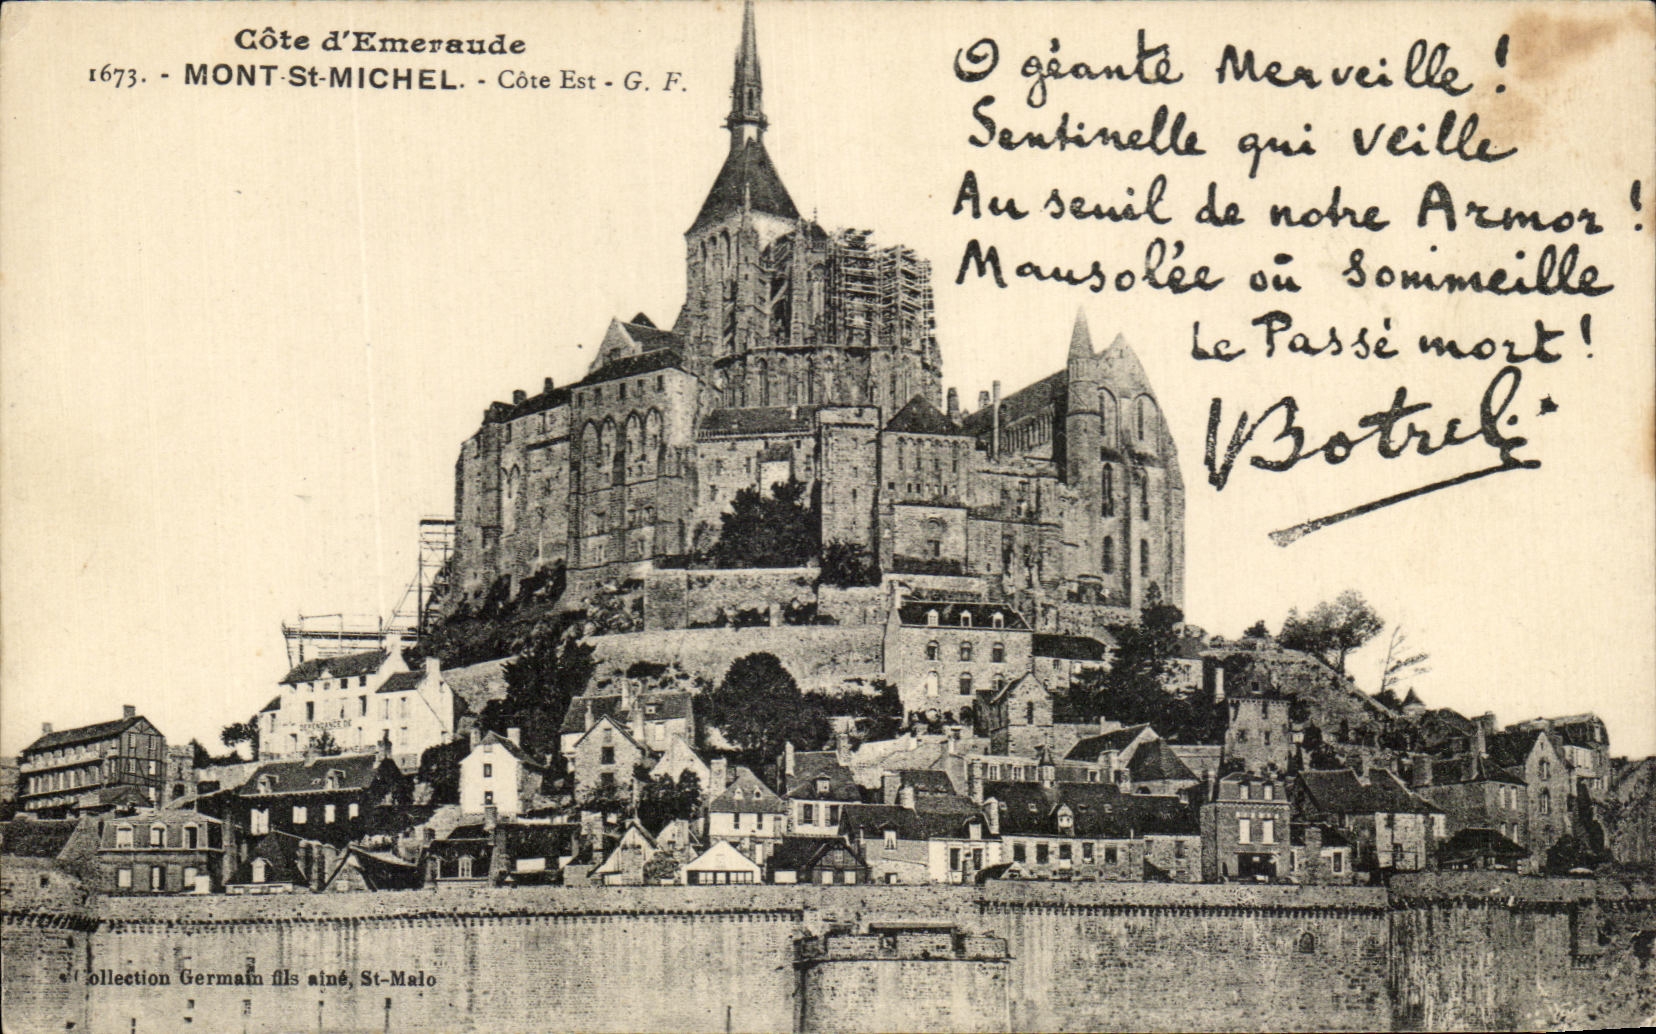 Côte d'Emeraude
1673. - MONT-St-MICHEL. - Côte Est - G. F.
O géante Merveille !
Sentinelle qui veille
Au seuil de notre Armor !
Mausolée où sommeille
Le Passé mort !
Botrel
DÉPENDANCE DE
Collection Germain fils aîné, St-Malo